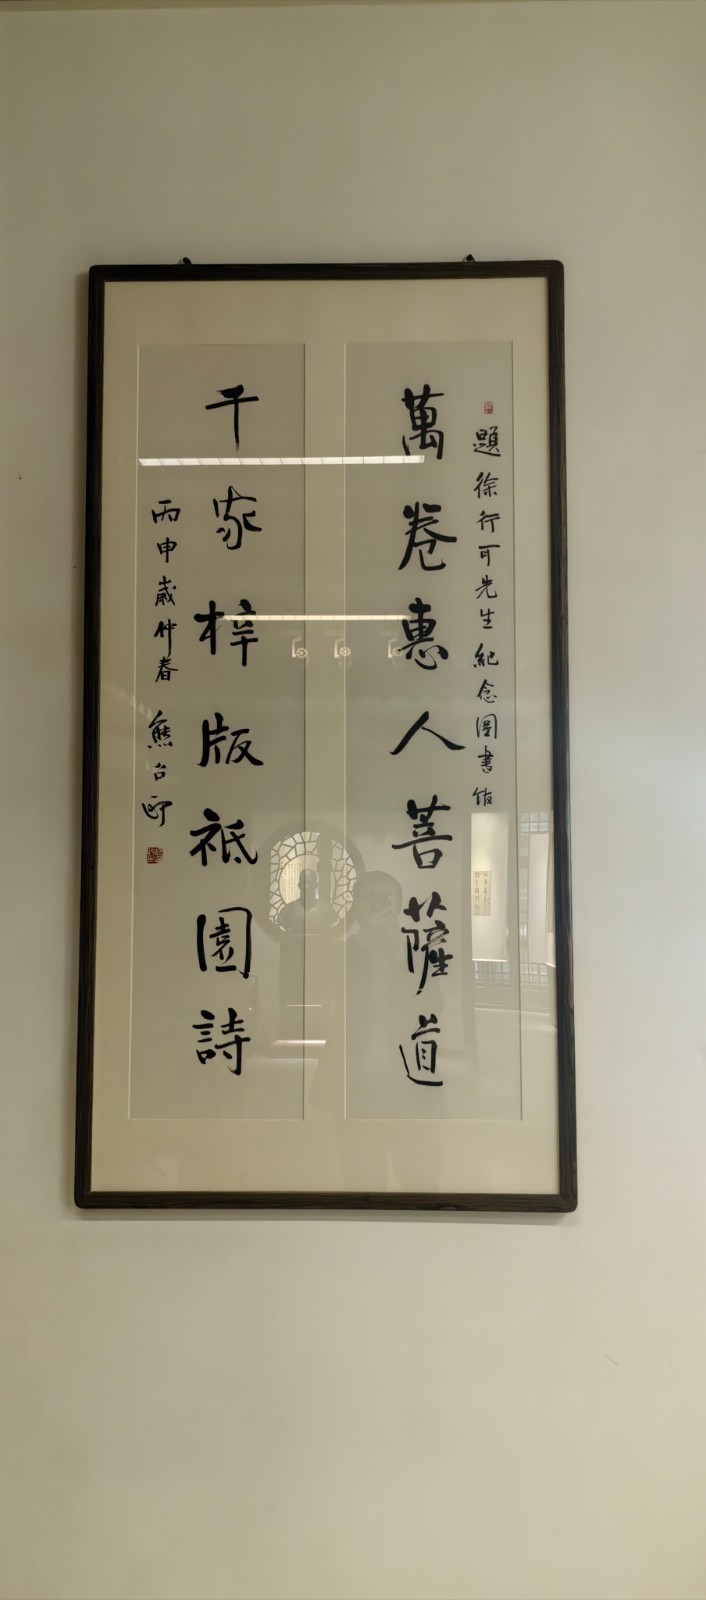 題徐行可先生紀念圖書館
萬卷惠人菩薩道
千家梓版祗園詩
丙申歲仲春 熊召政